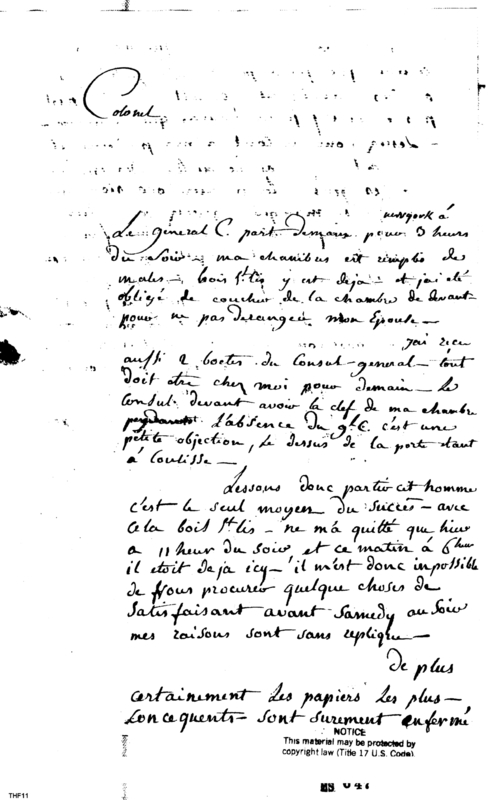 Colonel
newyork á
Le general C. part demain pour 3 heurs
du soir – ma chambus est rimplie de
males – bois St lis y est deja – et jai eté
obligé de coucher de la chambre de devant
pour ne pas derangee mon Epouse –
jai recu
aussi 2 boetes du Consul-general – tout
doit etre chez moi pour demain – Le
Consul devant avoir la clef de ma chambre
L'absence du gl. C. c'est une
petite objection, Le dessus de la porte etant
á Coulisse –
Lessons donc partir cet homme
c'est le seul moyen du Succès – avec
cela bois St lis – ne m'a quitté que hier
a 11 heur du soir et ce matin á 6 heur
il etoit deja icy – il m'est donc inpossible
de vous procurer quelque choses de
satisfaisant avant Samedy au Soir
mes raisons sont sans replique –
de plus
certainement Les papiers Les plus –
Concequents – sont surement enfermé
NOTICE
This material may be protected by
copyright law (Title 17 U.S. Code).
THF11